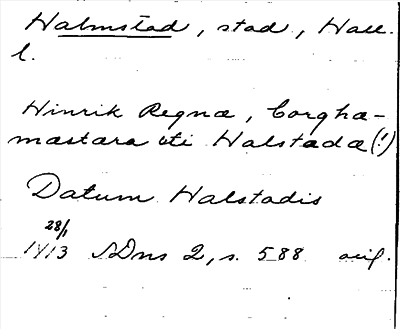 Halmstad, stad, Hall.
l.
Hinrik Regnæ, borgha-
mæstara uti Halstada (!)
Datum Halstadis
28/1
1413 SDns 2, s. 588 orig.